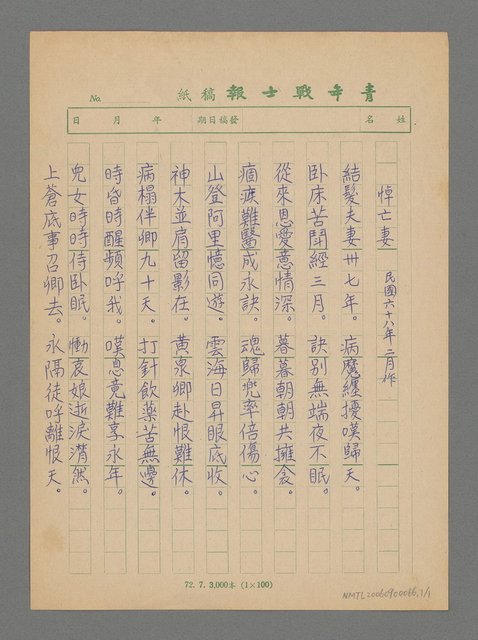 青年戰士報稿紙
No.
姓名 發稿日期 年 月 日
悼亡妻 民國六十八年二月作
結髮夫妻卅七年。病魔纏擾嘆歸天。
臥床苦鬥經三月。訣別無端夜不眠。
從來恩愛意情深。暮暮朝朝共擁衾。
痼疾難醫成永訣。魂歸兜率倍傷心。
山登阿里憶同遊。雲海日昇眼底收。
神木並肩留影在。黃泉卿赴恨難休。
病榻伴卿九十天。打針飲藥苦無邊。
時昏時醒頻呼我。嘆息竟難享永年。
兒女時時侍臥眠。慟哀娘逝淚潸然。
上蒼底事召卿去。永隔徒呼離恨天。
72. 7. 3,000本 (1×100)
NMTL20060900086,1/1